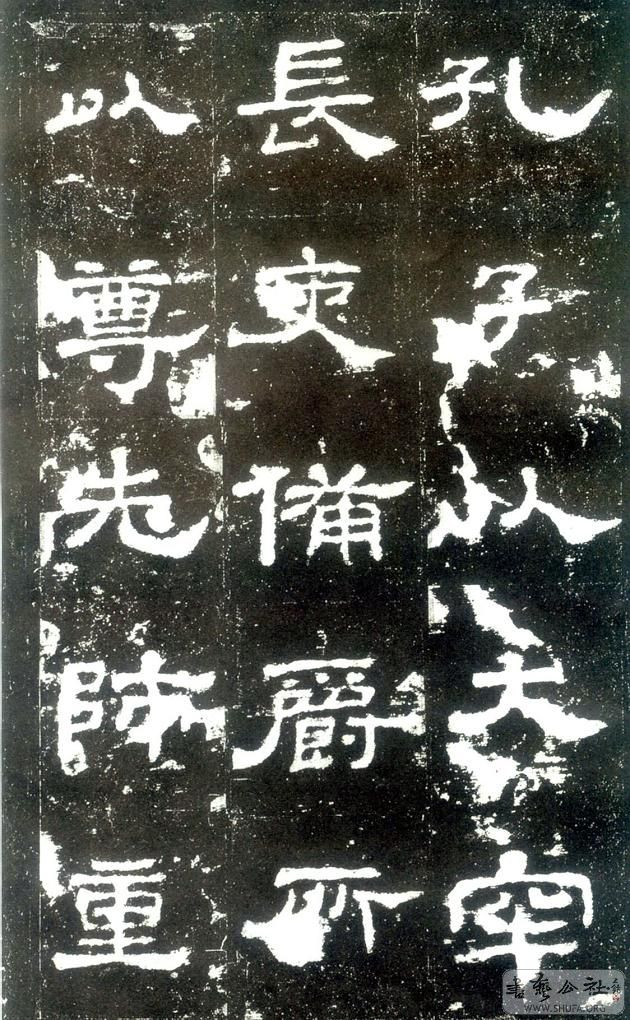 孔子以大牢
長吏備爵所
以尊先師重
書藝公社
WWW.SHUFA.ORG